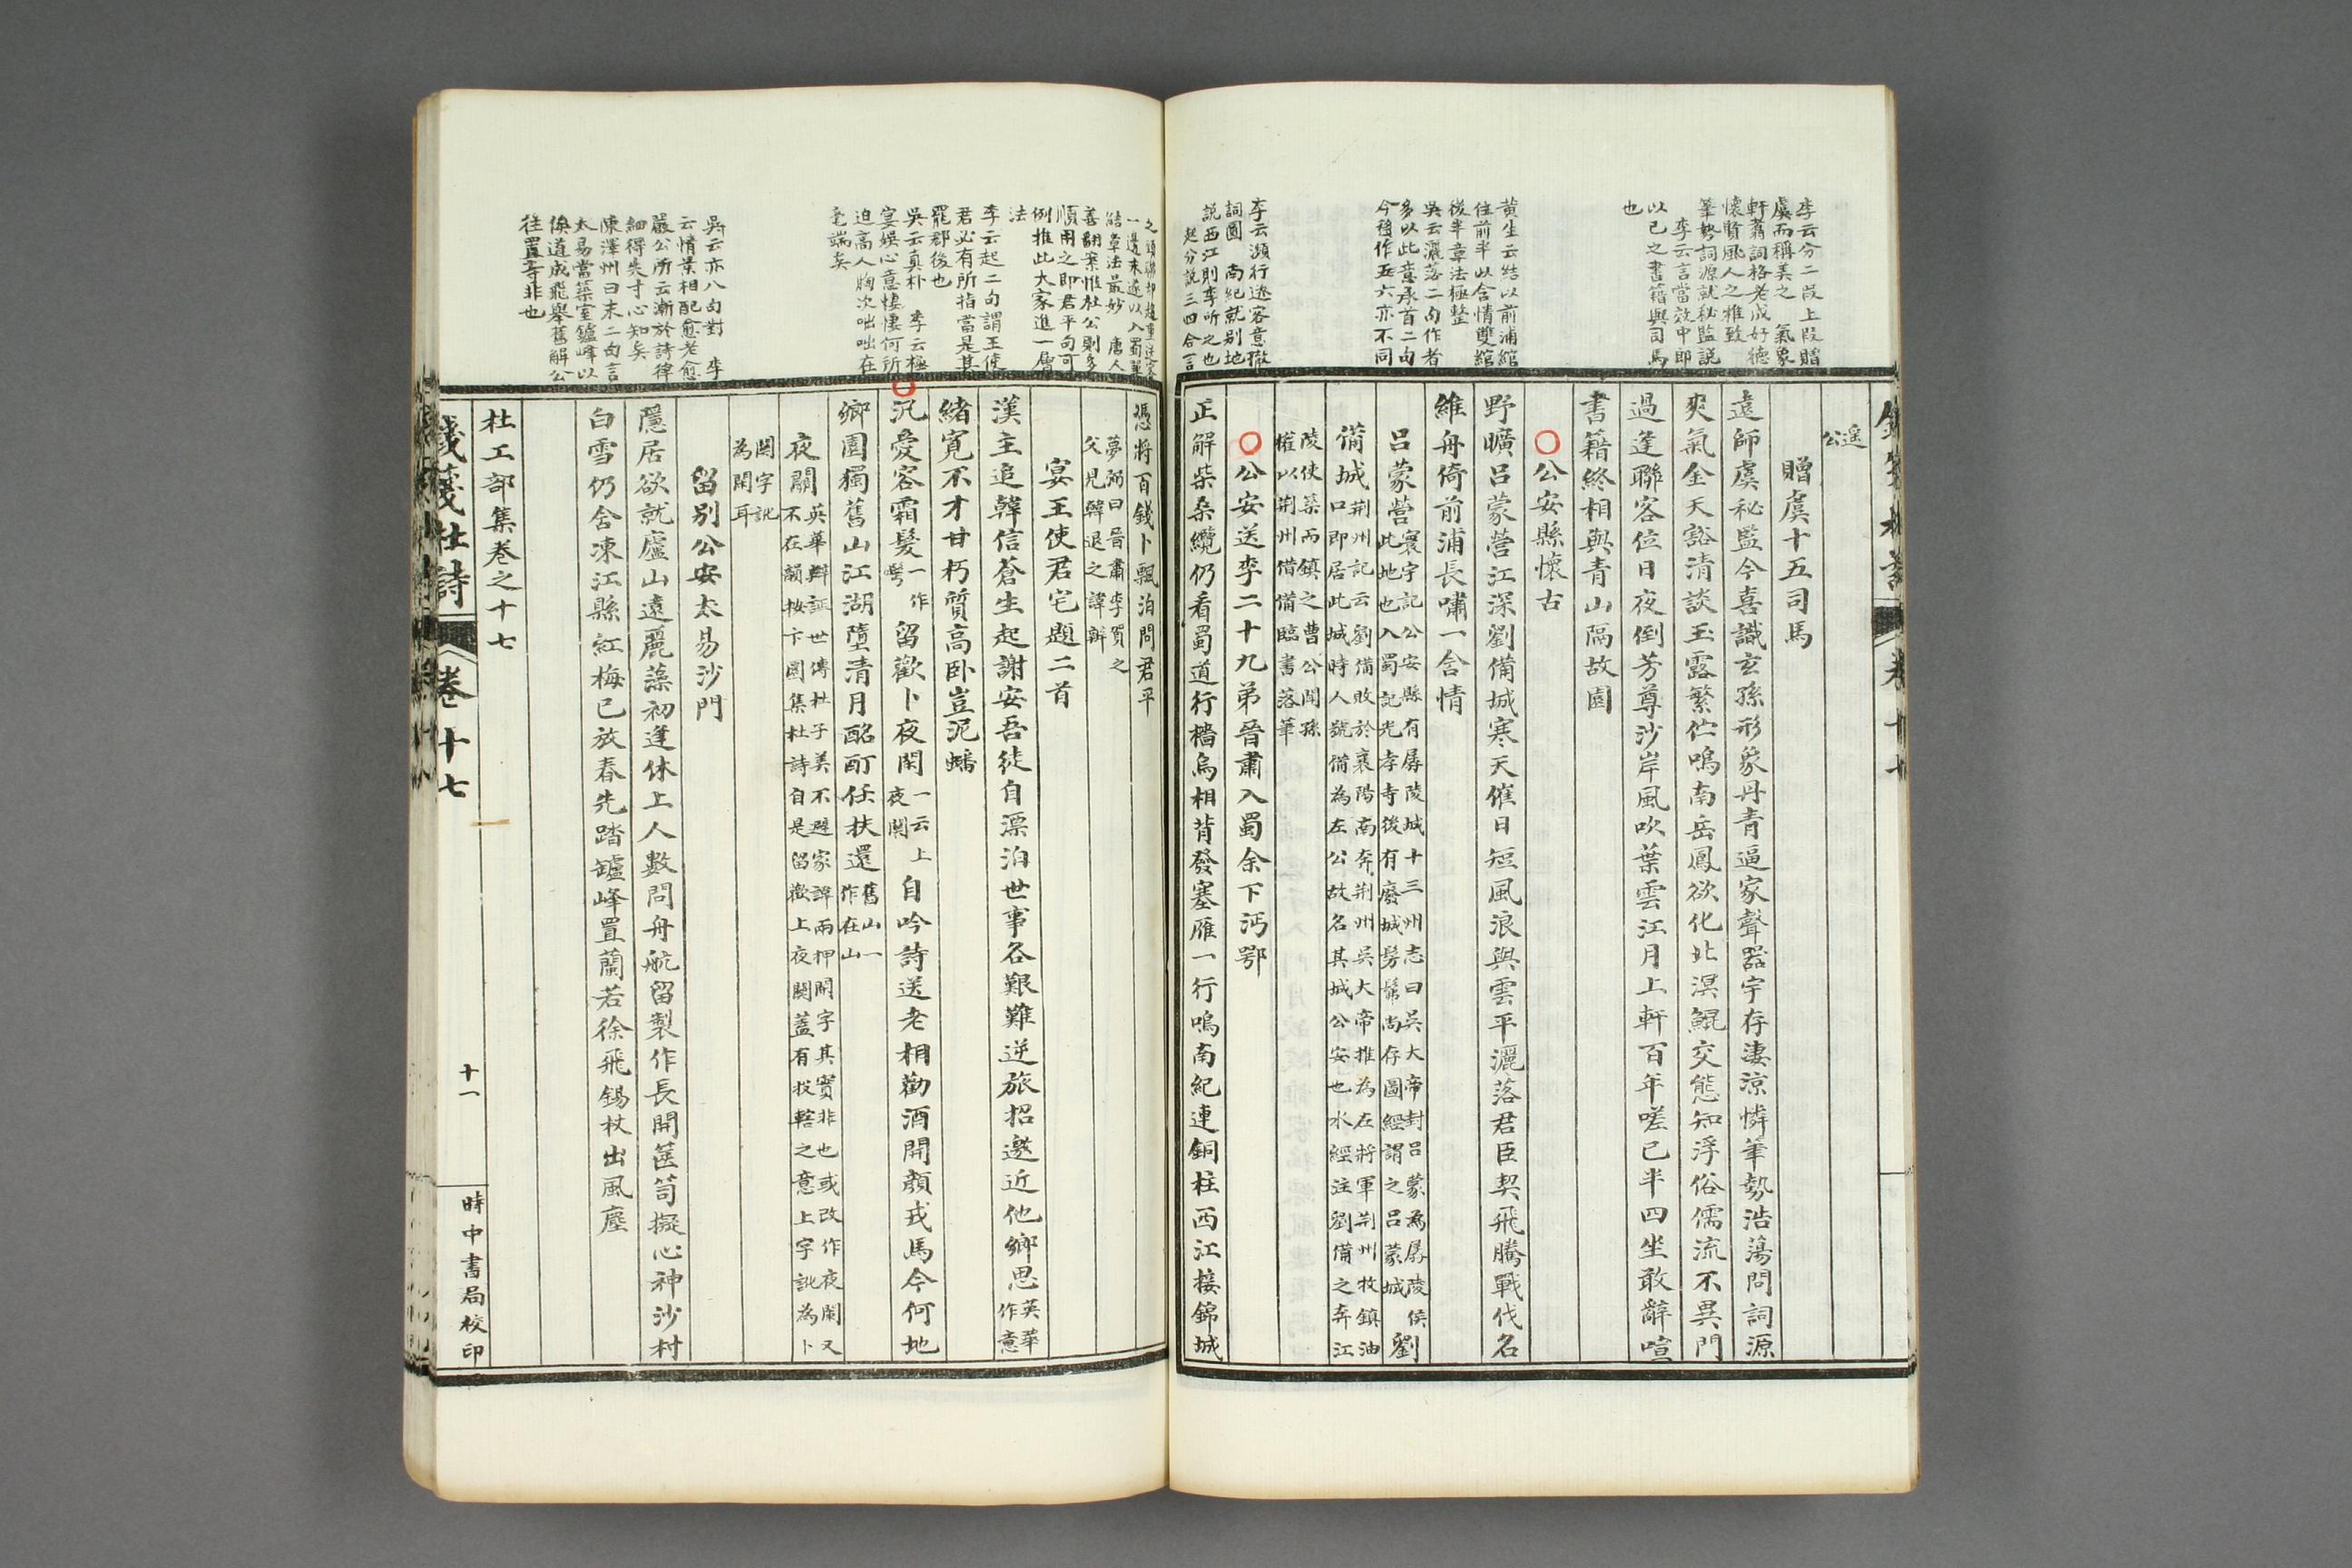 李云分二段上段贈
虞而稱美之　氣象
軒翥詞格老成好德
懷賢風人之雅致
筆勢詞源就秘監說
李云言當效中郎
以己之書籍與司馬
也
黃生云結以前浦綰
住前半以含情雙綰
後半章法極整
吳云灑落二句作者
多以此意承首二句
今移作五六亦不同
李云瀕行遠客意徹
詞圓　南紀就別地
說西江則李所之也
起分説三四合言
遥
公
贈虞十五司馬
遠師虞秘監今喜識玄孫形象丹青逼家聲器宇存淒涼憐筆勢浩蕩問詞源
爽氣金天豁清談玉露繁佇鳴南岳鳳欲化北溟鯤交態知浮俗儒流不異門
過逢聯客位日夜倒芳尊沙岸風吹葉雲江月上軒百年嗟已半四坐敢辭喧
書籍終相與青山隔故園
公安縣懷古
野曠呂蒙營江深劉備城寒天催日短風浪與雲平灑落君臣契飛騰戰伐名
維舟倚前浦長嘯一含情
呂蒙營寰宇記公安縣有孱陵城十三州志曰吳大帝封呂蒙為孱陵侯
此地也入蜀記光孝寺後有廢城髣髴尚存圖經謂之呂蒙城　劉
備城荆州記云劉備敗於襄陽南奔荆州吳大帝推為左將軍荆州牧鎮油
口即居此城時人號備為左公故名其城公安也水經注劉備之奔江
陵使築而鎮之曹公聞孫
權以荆州借備臨書落筆
公安送李二十九弟晉肅入蜀余下沔鄂
正解柴桑纜仍看蜀道行檣烏相背發塞雁一行鳴南紀連銅柱西江接錦城
一邊末遂以入蜀單
結章法最妙　唐人
善翻案惟杜公則多
順用之即君平句可
例推此大家進一層
法
李云起二句謂王使
君必有所指當是其
罷郡後也
吳云真朴　李云極
宴娱心意悽悽何所
迫高人胸次咄咄在
毫端矣
吳云亦八句對　李
云情景相配愈老愈
嚴公所云漸於詩律
細得失寸心知矣
陳澤州曰末二句言
太易當築室鑪峰以
俟道成飛舉舊解公
往置寺非也
憑將百錢卜飄泊問君平
夢弼曰晉肅李賀之
父見韓退之諱辯
宴王使君宅題二首
漢主追韓信蒼生起謝安吾徒自漂泊世事各艱難逆旅招邀近他鄉思英華
作意
緒寬不才甘朽質高卧豈泥蟠
汎愛容霜髮一作
鬢　留歡卜夜閑一云上
夜闌　自吟詩送老相勸酒開顏戎馬今何地
鄉園獨舊山江湖墮清月酩酊任扶還舊山一
作在山
夜闌英華辯証世傳杜子美不避家諱兩押閑字其實非也或改作夜闌又
不在韻按卞圜集杜詩自是留歡上夜闌蓋有投轄之意上字訛為卜
闌字訛
為閑耳
留別公安太易沙門
隱居欲就廬山遠麗藻初逢休上人數問舟航留製作長開篋笥擬心神沙村
白雪仍含凍江縣紅梅已放春先踏罏峰置蘭若徐飛錫杖出風塵
杜工部集卷之十七
錢箋杜詩
卷十七
十一
時中書局校印